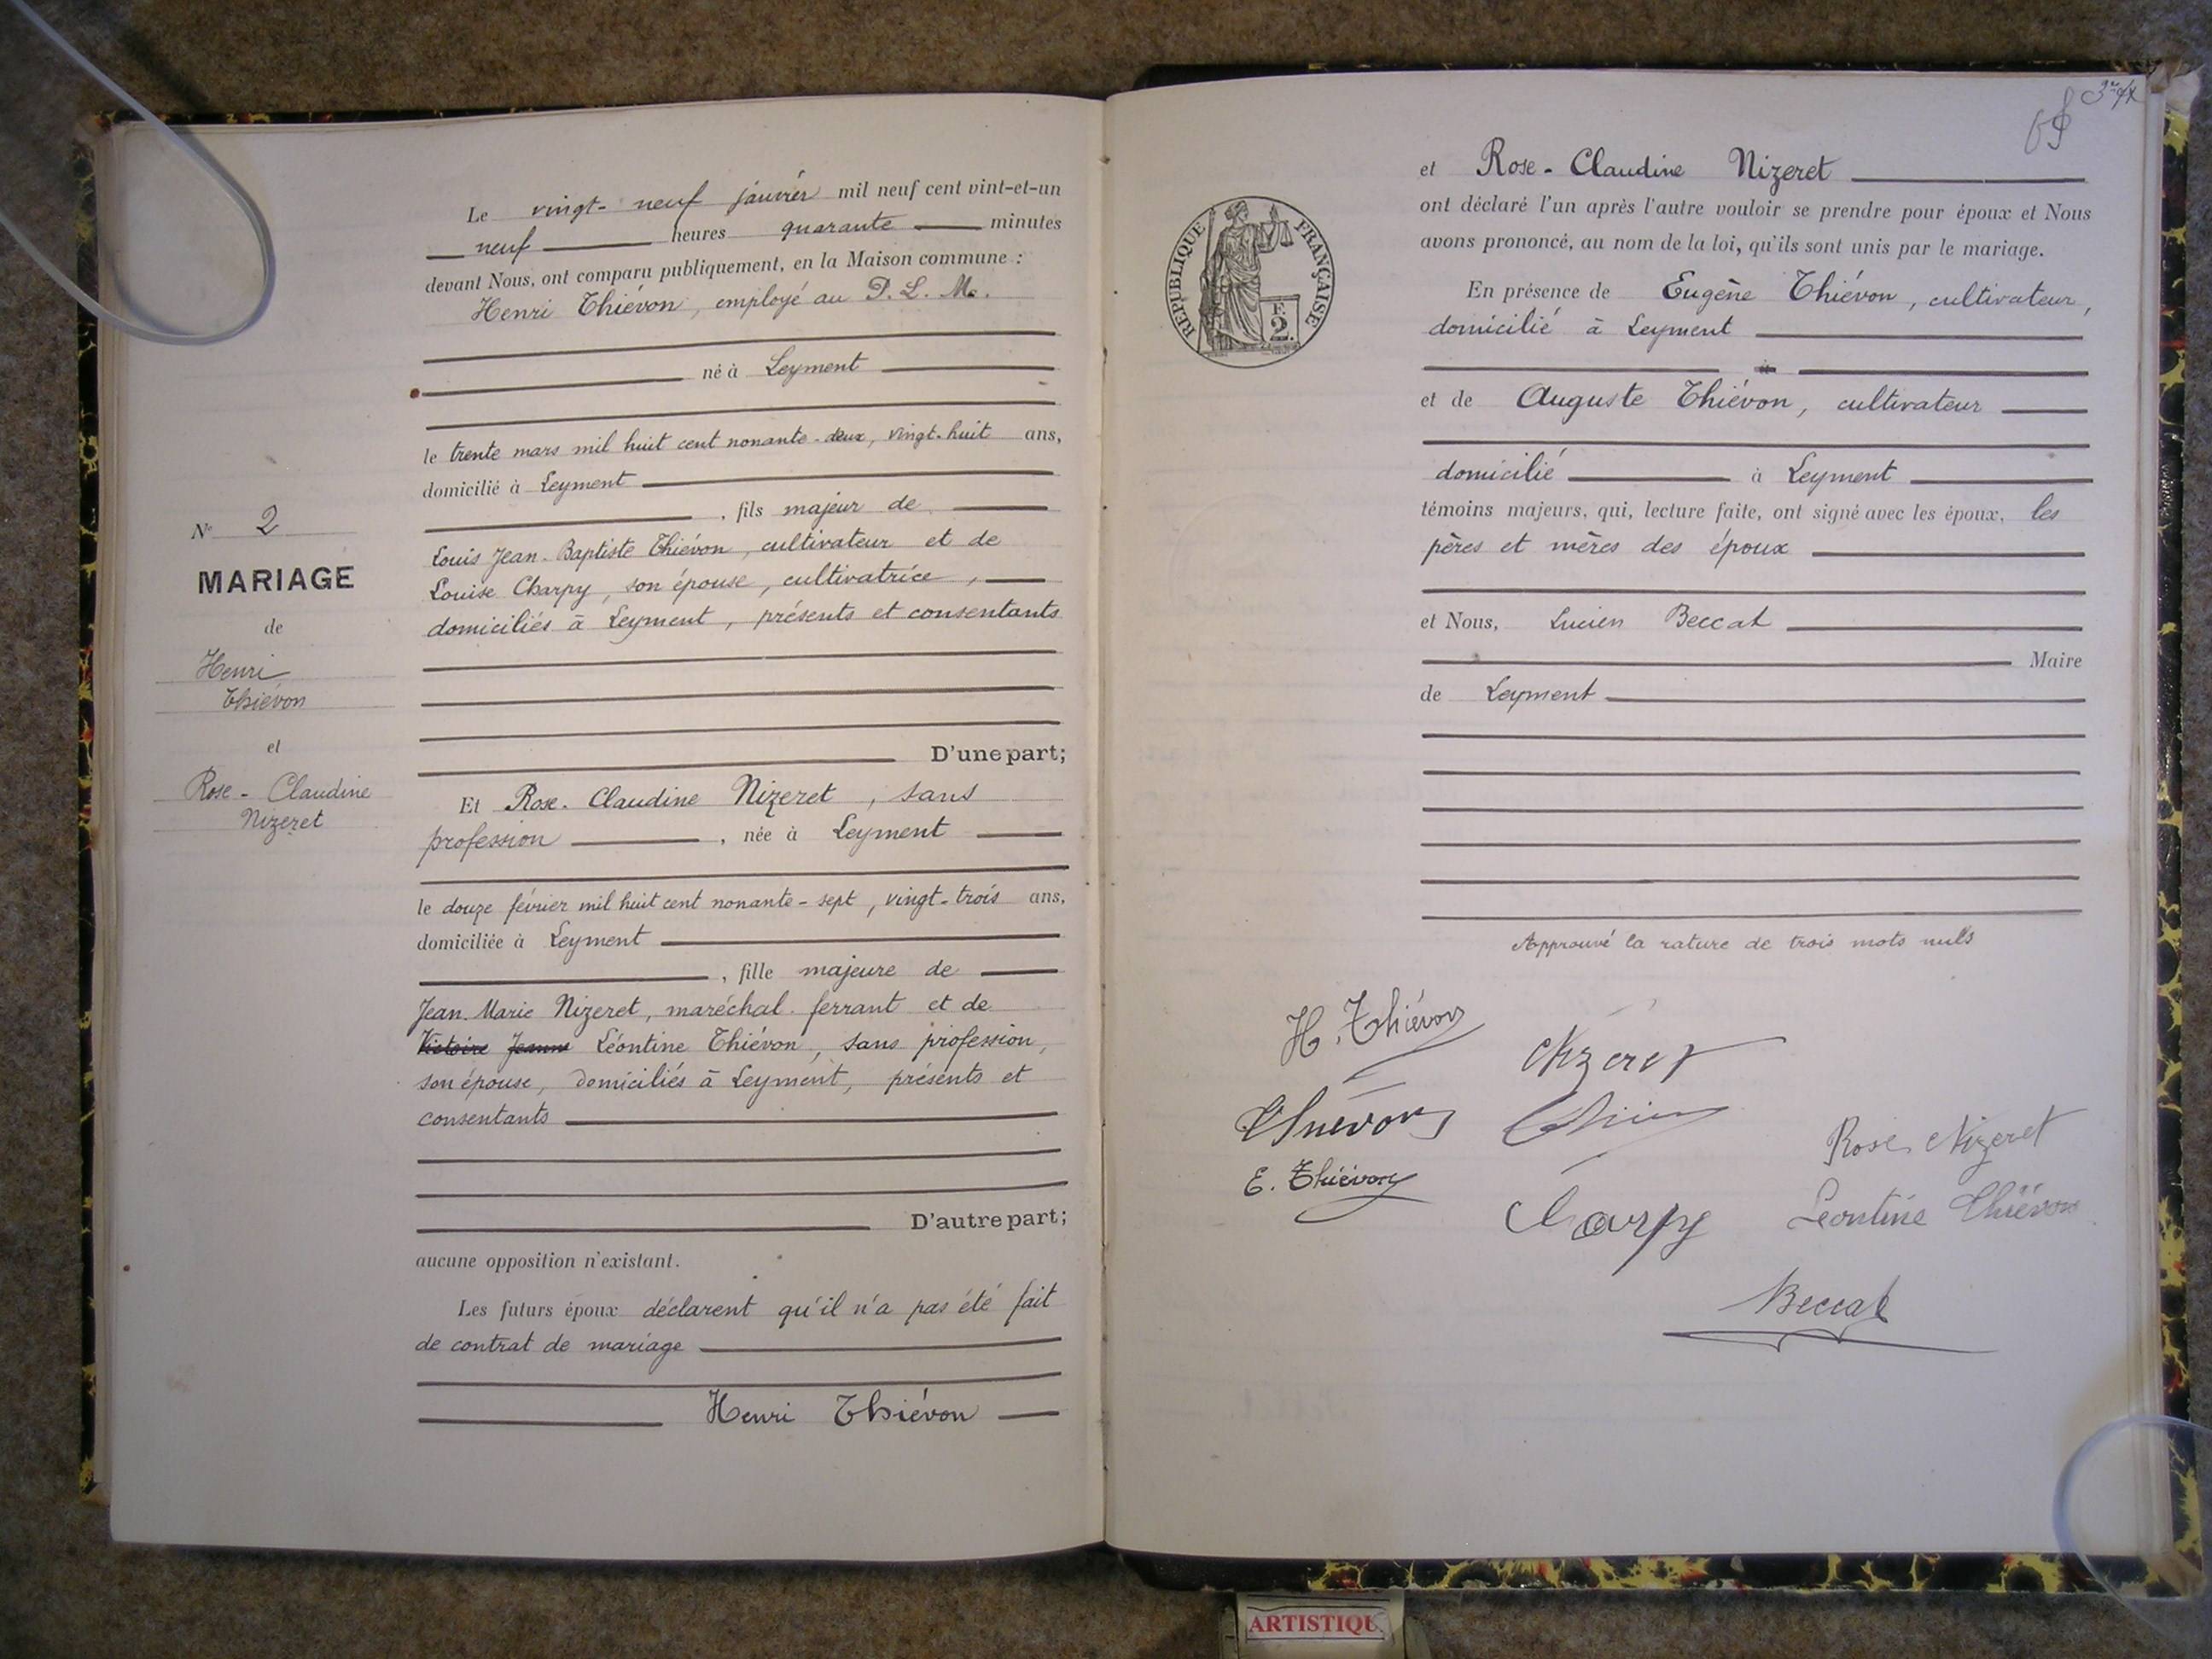 Le vingt-neuf janvier mil neuf cent vint-et-un
neuf heures quarante minutes
devant Nous, ont comparu publiquement, en la Maison commune :
Henri Thiévon, employé au P. L. M.
né à Leyment
le trente mars mil huit cent nonante-deux, vingt-huit ans,
domicilié à Leyment
, fils majeur de
Louis Jean-Baptiste Thiévon, cultivateur et de
Louise Charpy, son épouse, cultivatrice,
domiciliés à Leyment, présents et consentants
D'une part;
N° 2
MARIAGE
de
Henri
Thiévon
et
Rose-Claudine
Nizeret
Et Rose-Claudine Nizeret, sans
profession, née à Leyment
le douze février mil huit cent nonante-sept, vingt-trois ans,
domiciliée à Leyment
, fille majeure de
Jean-Marie Nizeret, maréchal-ferrant et de
Victoire Jeanne Léontine Thiévon, sans profession,
son épouse, domiciliés à Leyment, présents et
consentants
D'autre part;
aucune opposition n'existant.
Les futurs époux déclarent qu'il n'a pas été fait
de contrat de mariage
Henri Thiévon
RÉPUBLIQUE FRANÇAISE
F.
2.
et Rose-Claudine Nizeret
ont déclaré l'un après l'autre vouloir se prendre pour époux et Nous
avons prononcé, au nom de la loi, qu'ils sont unis par le mariage.
En présence de Eugène Thiévon, cultivateur,
domicilié à Leyment
à
et de Auguste Thiévon, cultivateur
domicilié à Leyment
témoins majeurs, qui, lecture faite, ont signé avec les époux, les
pères et mères des époux
et Nous, Lucien Beccat
Maire
de Leyment
Approuvé la rature de trois mots nuls
H. Thiévon
Nizeret
Thiévon
E. Thiévon
Rose Nizeret
Charpy
Léontine Thiévon
Beccat
ARTISTIQU